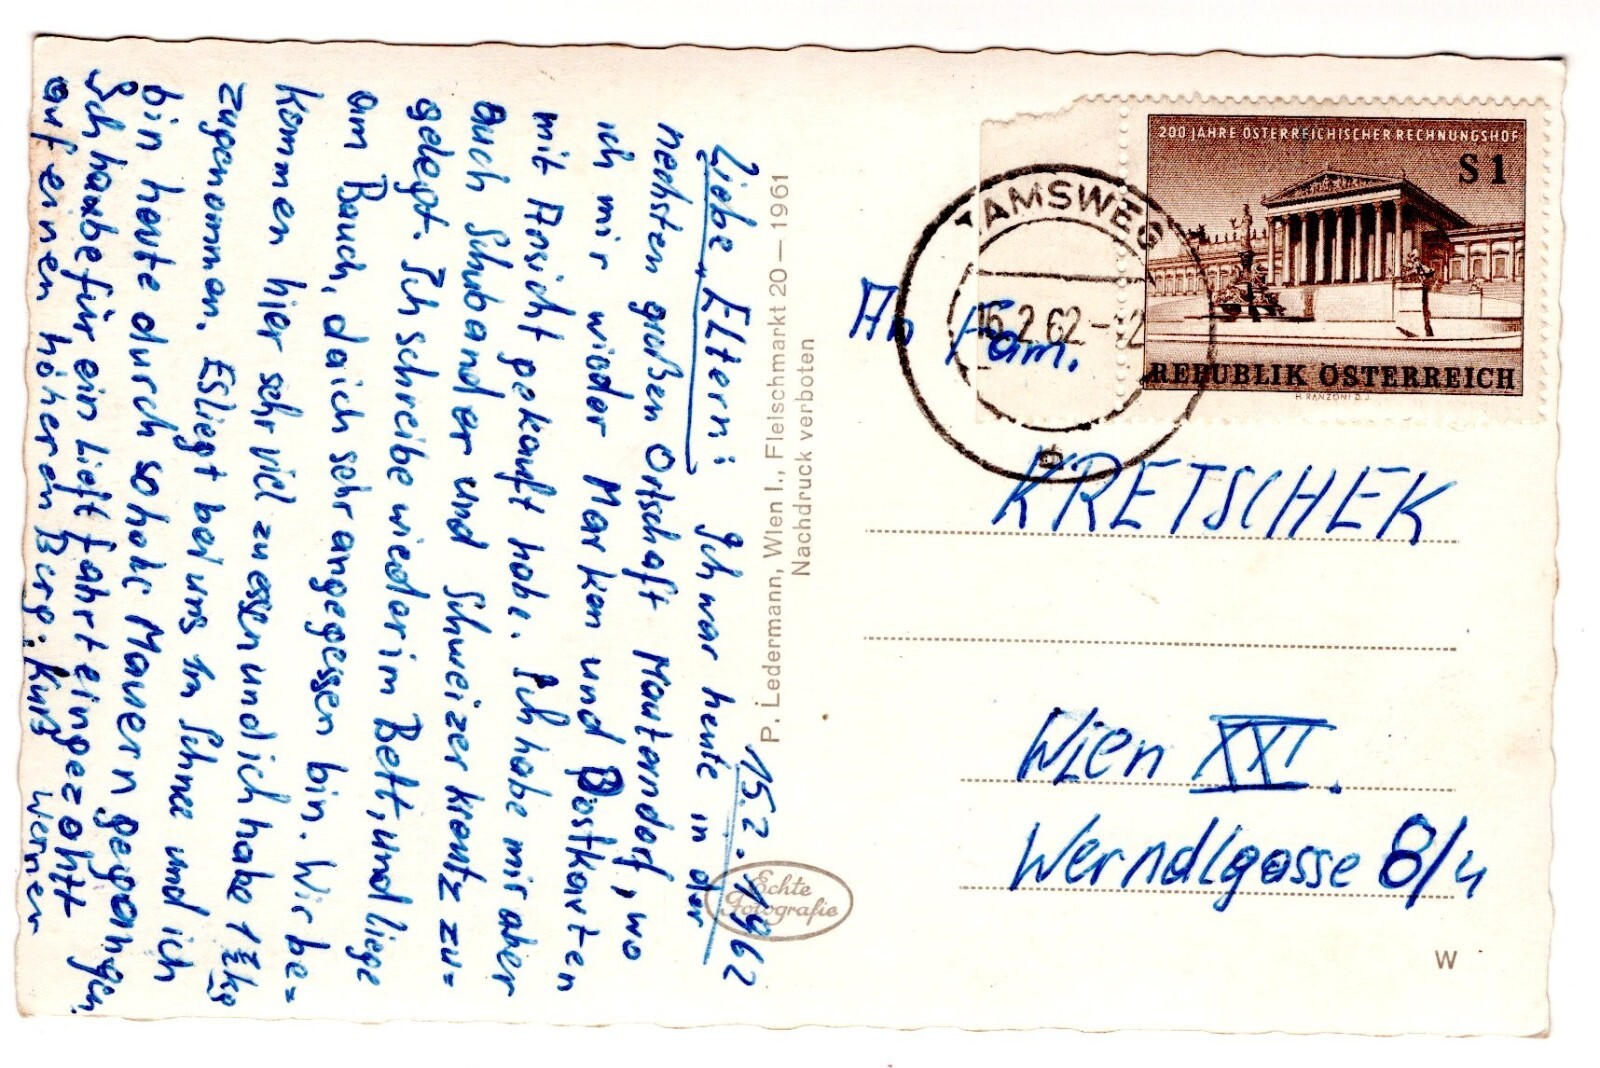 15.2.1962
Liebe Eltern! Ich war heute in der
nechsten großen Ortschaft Mauterndorf, wo
ich mir wieder Marken und Postkarten
mit Ansicht gekauft habe. Ich habe mir aber
auch Schubander und Schweizerkrantz zu=
gelegt. Ich schreibe wieder im Bett, und liege
am Bauch, da ich sehr angegessen bin. Wir be=
kommen hier sehr viel zu essen und ich habe 1 1/2 kg
zugenommen. Es liegt bei uns 1m Schnee und ich
bin heute durch so hohe Mauern gegangen.
Ich habe für ein Lieft fahrt eingezahlt
auf einen höheren Berg. Kuß Werner
P. Ledermann, Wien I., Fleischmarkt 20 — 1961
Nachdruck verboten
Echte
Fotografie
200 JAHRE ÖSTERREICHISCHER RECHNUNGSHOF
S 1
REPUBLIK ÖSTERREICH
H. RANZONI D. J.
TAMSWEG
16.2.62-12
b
An Fam.
KRETSCHEK
Wien XXI.
Werndlgasse 8/4
W